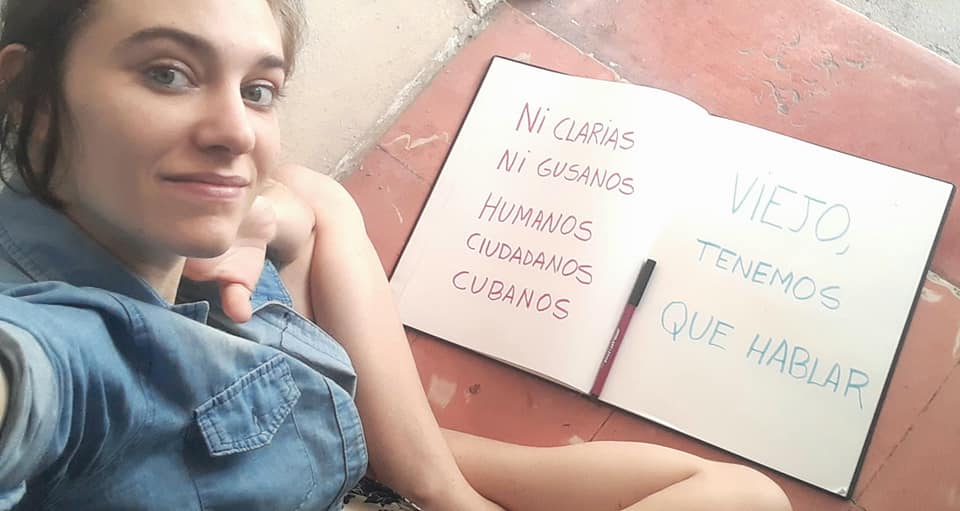 Ni CLARIAS
Ni GUSANOS
HUMANOS
CIUDADANOS
CUBANOS
ViEJO,
TENEMOS
QUE HABLAR